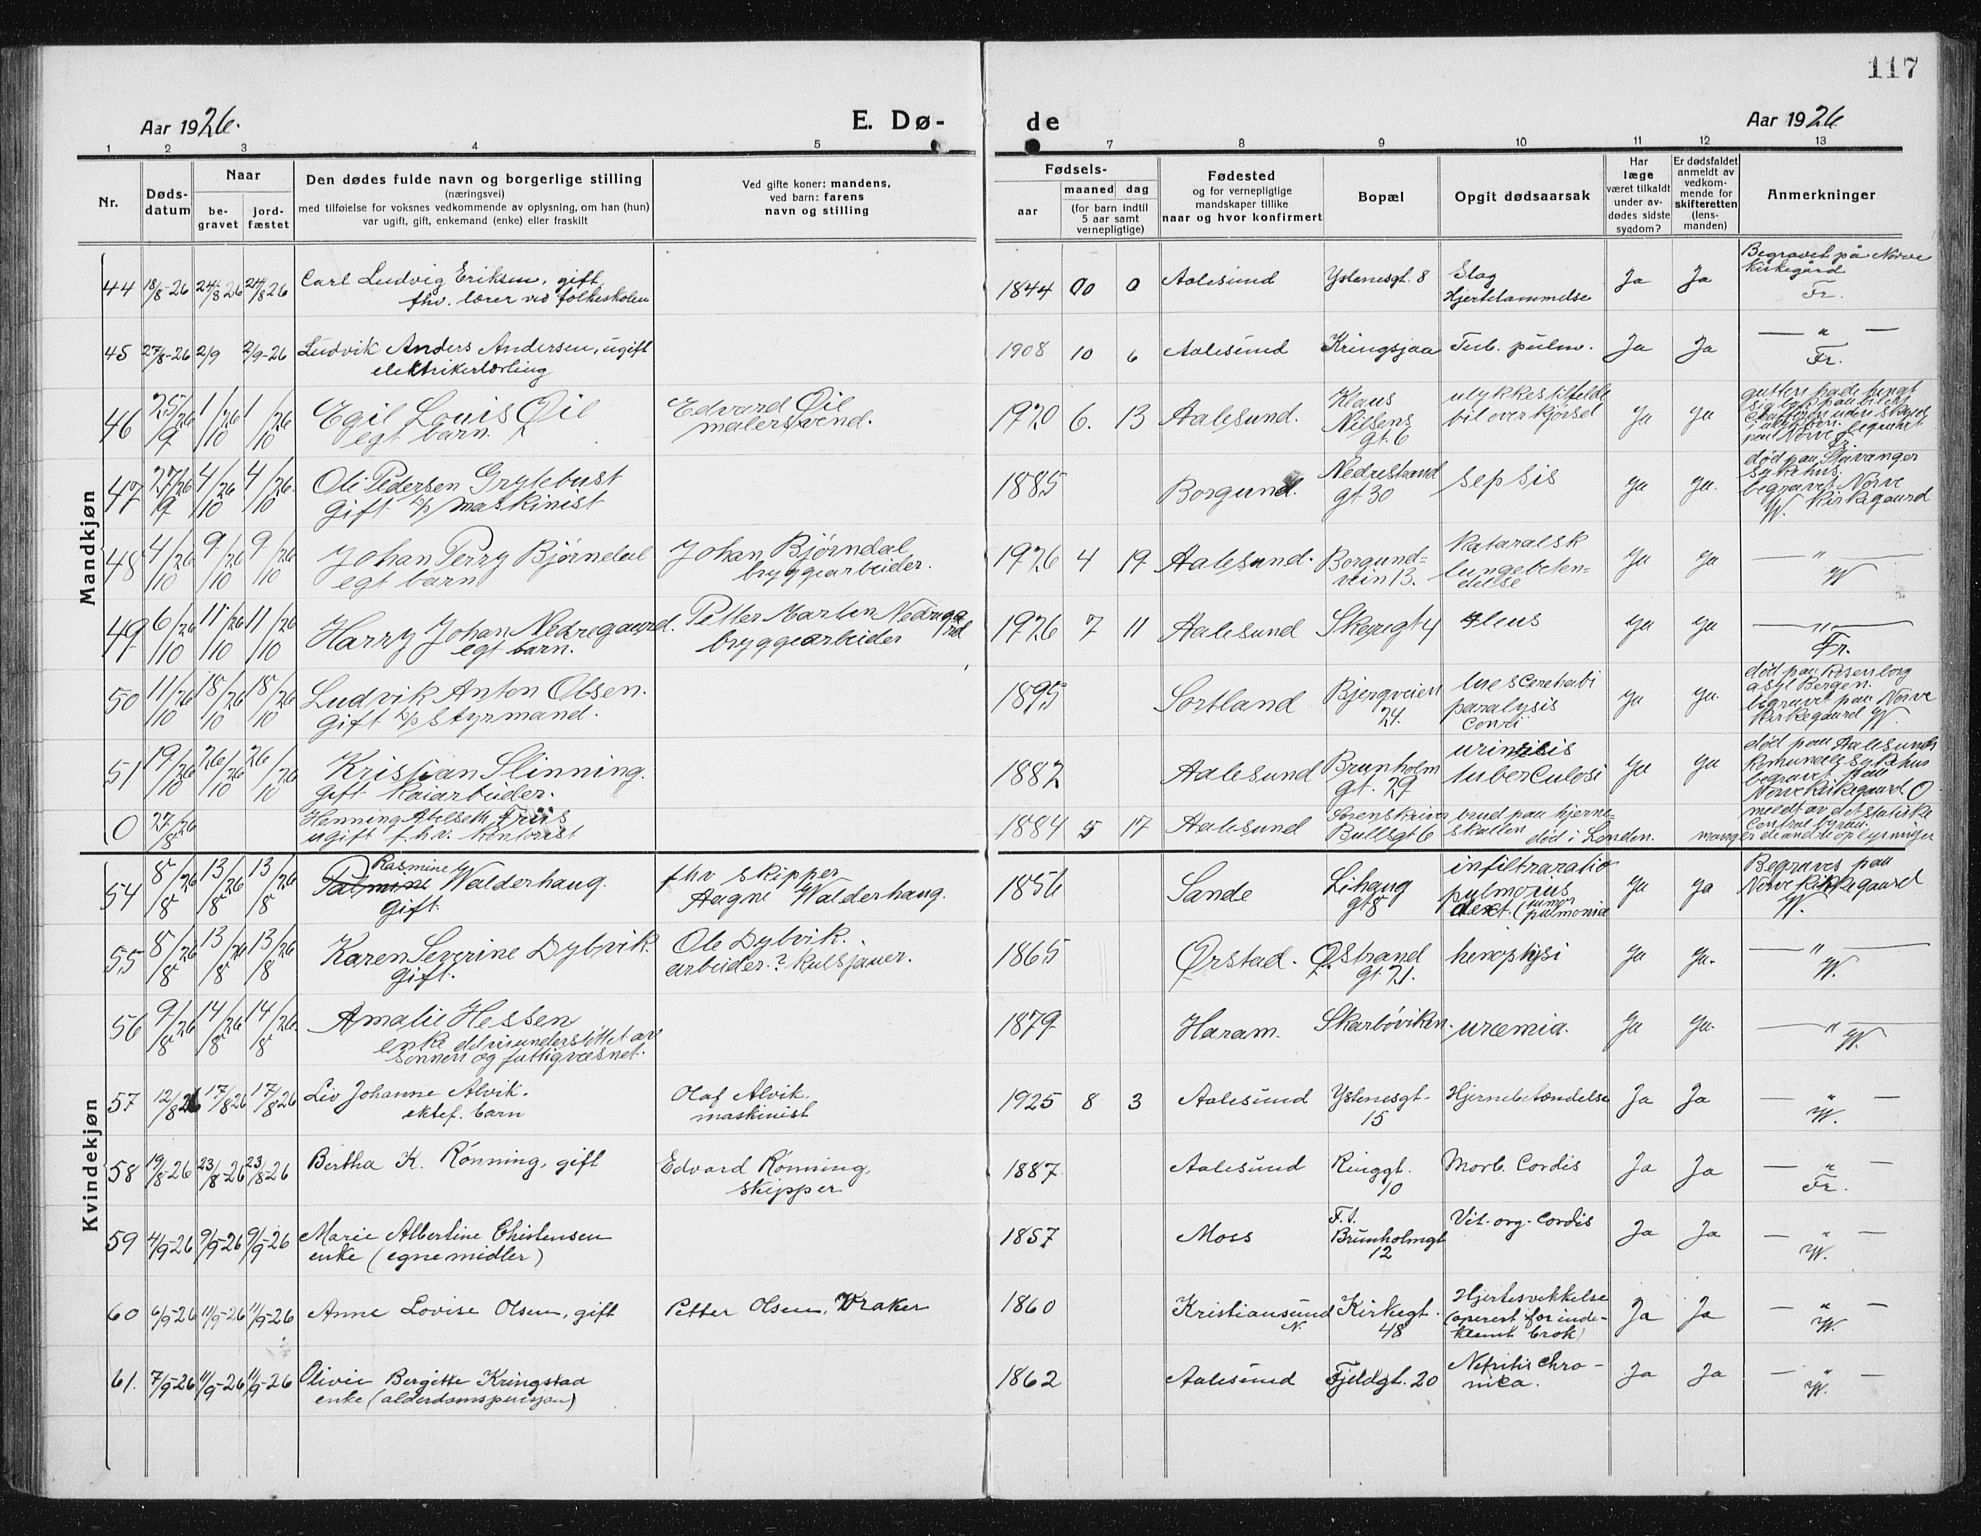 117
Aar 1926.
E. Dø-
de
Aar 1926
1 2 3 4 5 7 8 9 10 11 12 13
Nr.
Døds-
datum
Naar
be-
gravet
jord-
fæstet
Den dødes fulde navn og borgerlige stilling
(næringsvei)
med tilføielse for voksnes vedkommende av oplysning, om han (hun)
var ugift, gift, enkemand (enke) eller fraskilt
Ved gifte koner: mandens,
ved barn: farens
navn og stilling
Fødsels-
aar
maaned dag
(for barn indtil
5 aar samt
vernepligtige)
Fødested
og for vernepligtige
mandskaper tillike
naar og hvor konfirmert
Bopæl
Opgit dødsaarsak
Har
læge
været tilkaldt
under av-
dødes sidste
sygdom?
Er dødsfaldet
anmeldt av
vedkom-
mende for
skifteretten
(lens-
manden)
Anmerkninger
Mandkjøn
44 18/8-26 24/8 26 24/8 26 Carl Ludvig Eriksen, gift,
fhv. lærer ved folkeskolen
1844 00 0 Aalesund Ystenesgt. 8 Slag
Hjertelammelse
Ja Ja Begravet på Nørve
kirkegård
Fr.
45 27/8-26 2/9 2/9-26 Ludvik Anders Andersen, ugift
elektrikerlærling
1908 10 6 Aalesund Kringsjaa Tub. pulm. Ja Ja — " —
Fr.
46 25/9 26 1/10 26 1/10 26 Egil Louis Øil
egt barn.
Edvard Øil
malersvend.
1920 6. 13 Aalesund. Klaus
Nilsens
gt. 6
ulykkestilfelde
bil overkjørsel
Ja Ja gutten hadde hengt
47 27/9 26 4/10 26 4/10 26. Ole Pedersen Grytebust
gift maskinist
1885 Borgund. Nedrestrand
gt 30
sepsis Ja Ja. død paa Stavanger
sykehus.
begravet Nørve
W. kirkegaard
48 4/10 26 9/10 26 9/10 26 Johan Perry Bjørndal
egt barn
Johan Bjørndal
bryggearbeider.
1926 4 19 Aalesund. Borgund=
vein 13.
kataralsk
lungebeten=
delse
Ja Ja — " —
W
49 6/10 26 11/10 26 11/10 26 Harry Johan Nedregaard.
egt barn.
Petter Marten Nedregaa
rd
bryggearbeider
1926 7 11 Aalesund Skeregt 4 Ileus Ja Ja — " —
Fr.
50 11/10 26 18/10 26 18/10 26 Ludvik Anton Olsen.
gift styrmand.
1895 Sortland Bjergveien
24.
paralysis
Ja Ja. død paa Rosenborg
asyl Bergen.
begravet paa Nørve
kirkegaard W.
51 19/10 26 26/10 26 26/10 26 Kristian Slinning.
gift kaiarbeider.
1882 Aalesund Brunholm
gt. 29
tuberculosi
Ja Ja død paa Aalesunds
komunale sykehus
begravet paa
Nørve kirkegaard O
0 27/8 26 Henning Friis
ugift f.h.v. kontorist
1884 5 17 Aalesund Sorenskriver
Bullsgt 6
brud paa hjerne=
skallen død i London.
meldt av det statistiske
Central byraa.
mangler de andre oplysninger
Kvindekjøn
54 8/8 26 13/8 26 13/8 26 Rasmine
Palmine Walderhaug.
gift.
fhv skipper
Aagne Walderhaug.
1856 Sande Lihaug
gt 8
infiltraratio
pulmonis
dext. (tumor
pulmonia
Ja Ja Begraves paa
Nørve kirkegaard
W.
55 8/8 26 13/8 26 13/8 26 Karen Severine Dybvik.
gift.
Ole Dybvik.
arbeider.? kulsjauer.
1865 Ørstad. Ø.strand
gt 21.
hemoptysi Ja Ja. — " —
W.
56 9/8 26 14/8 26 14/8 26 Amalie Hessen
enke delvis understøttet av
sønnen og fattigvæsnet.
1879 Haram. Skarbøviken. uræmia. Ja Ja. — " —
W.
57 12/8 26 17/8 26 17/8 26 Liv Johanne Alvik.
ektef. barn
Olaf Alvik.
maskinist
1925 8 3 Aalesund Ystenesgt.
15
Hjernebetændelse Ja Ja — " —
W.
58 19/8-26 23/8-26 23/8-26 Bertha K. Rønning, gift
Edvard Rønning,
skipper
1887 Aalesund Ringgt.
10
Morb. Cordis Ja Ja — " —
Fr.
59 4/9-26 9/9-26 9/9-26 Marie Albertine Christensen
enke (egne midler)
1857 Moss F.t.
Brunholmgt
12
Vit. org. Cordis Ja Ja — " —
W.
60 6/9-26 11/9-26 11/9-26 Anne Lovise Olsen, gift
Petter Olsen, Vraker
1860 Kristiansund
N.
Kirkegt.
48
Hjertesvekkelse
(operert for inde-
klemt brok)
Ja Ja — " —
W.
61. 7/9-26 11/9-26 11/9-26 Olivie Bergitte Kringstad
enke (alderdomspensjon)
1862 Aalesund Fjeldgt. 20 Nefritis chro-
nica.
Ja Ja — " —
W.